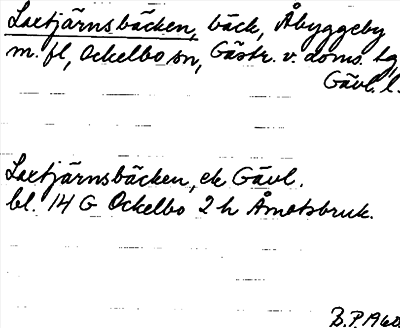 Laxtjärnsbäcken, bäck, Åbyggeby
m. fl, Ockelbo sn, Gästr. v. doms. tg,
Gävl. l.
Laxtjärnsbäcken, ek Gävl.
bl. 14 G Ockelbo 2 h Åmotsbruk.
B.P. 1960